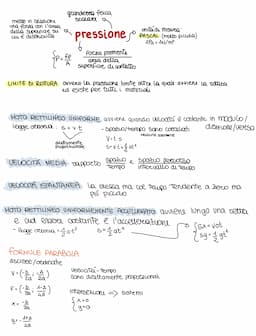 grandezza fisica
scalare
mette in relazione
una forza con l'area
della superficie su
cui è distribuita
pressione
unità di misura
PASCAL (molto piccola)
1Pa = 1N/m²
P = F/S
forza premente
area della
superficie di contatto
LIMITE DI ROTTURA ovvero la pressione limite oltre la quale avviene la rottura
ed esiste per tutti i materiali
MOTO RETTILINEO UNIFORME avviene quando velocità è costante in modulo/
direzione/verso
legge oraria: s = v·t
spazio/tempo sono correlati
direttamente
proporzionali
VELOCITÀ MEDIA rapporto spazio/tempo = spazio percorso/intervallo di tempo
VELOCITÀ ISTANTANEA la stessa ma col tempo tendente a zero ma
più piccolo
MOTO RETTILINEO UNIFORMEMENTE ACCELERATO avviene lungo una retta
e ad essere costante è l'accelerazione
legge oraria
FORMULE PARABOLA
ascisse/ordinate
velocità-tempo
sono direttamente proporzionali
intersezioni → sistema
x=0
y=0